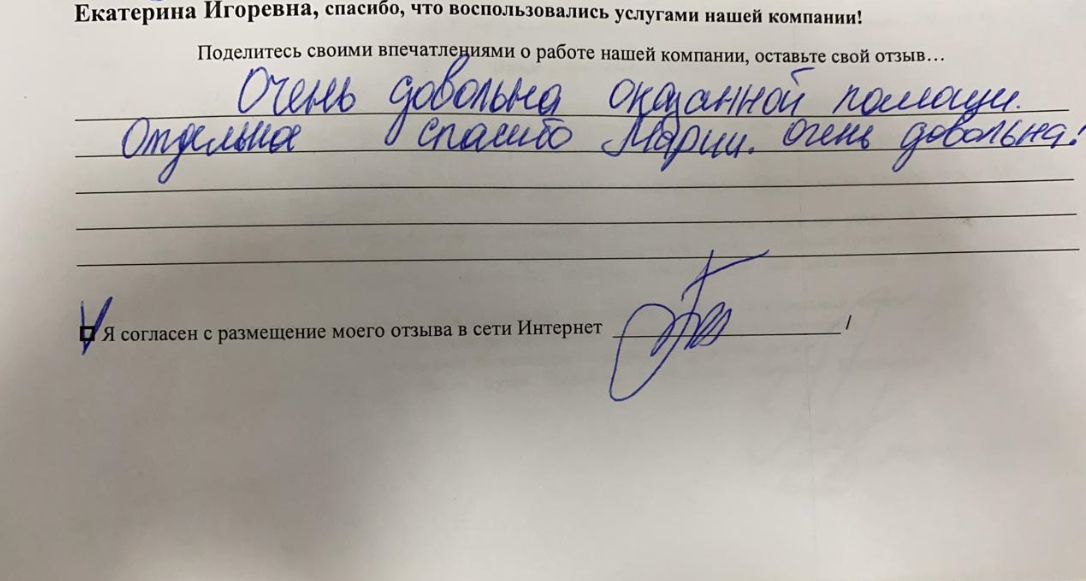 Екатерина Игоревна, спасибо, что воспользовались услугами нашей компании!
Поделитесь своими впечатлениями о работе нашей компании, оставьте свой отзыв…
Очень довольна оказанной помощи.
Отдельное спасибо Марии. Очень довольна!
Я согласен с размещение моего отзыва в сети Интернет /